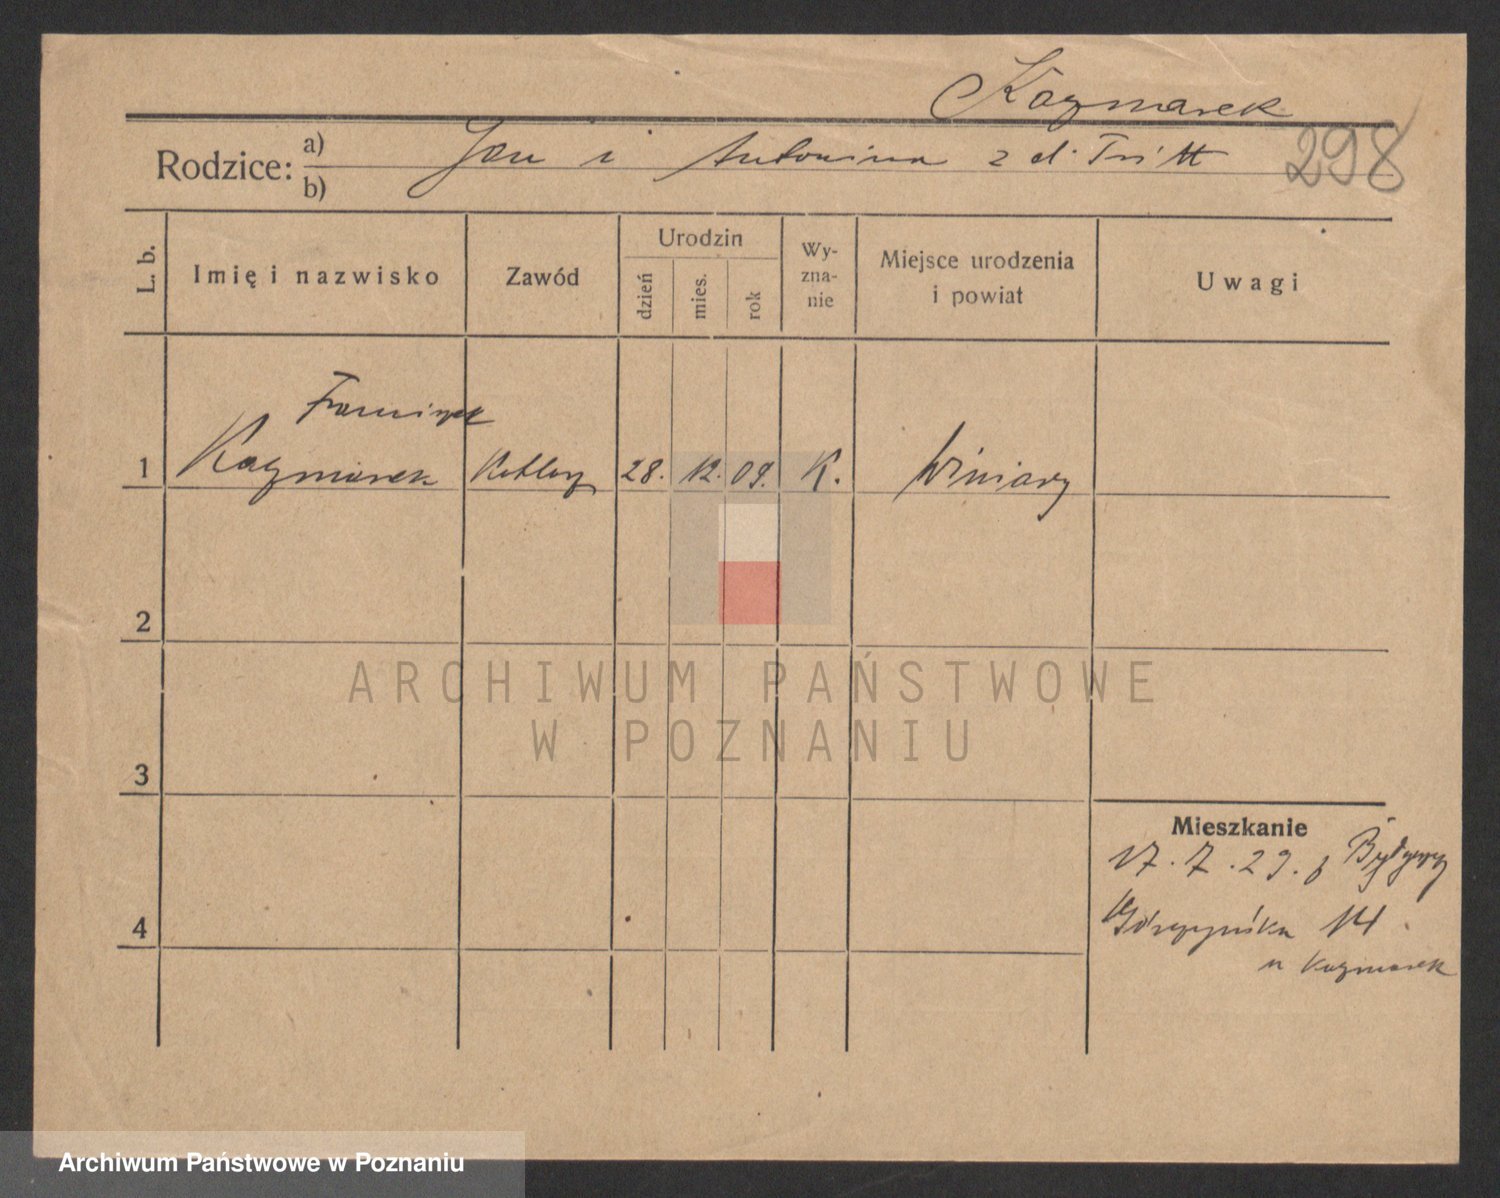 Kaczmarek
298
Rodzice: a) Jan i Antonina z d. Tritt
b)
L. b.
Imię i nazwisko
Zawód
Urodzin
dzień
mies.
rok
Wy-
zna-
nie
Miejsce urodzenia
i powiat
Uwagi
Franciszek
1 Kaczmarek 28. 12. 09. K. Winiary
2
3
4
ARCHIWUM PAŃSTWOWE
W POZNANIU
Mieszkanie
17. 7. 29. z
14.
u Kaczmarek
Archiwum Państwowe w Poznaniu